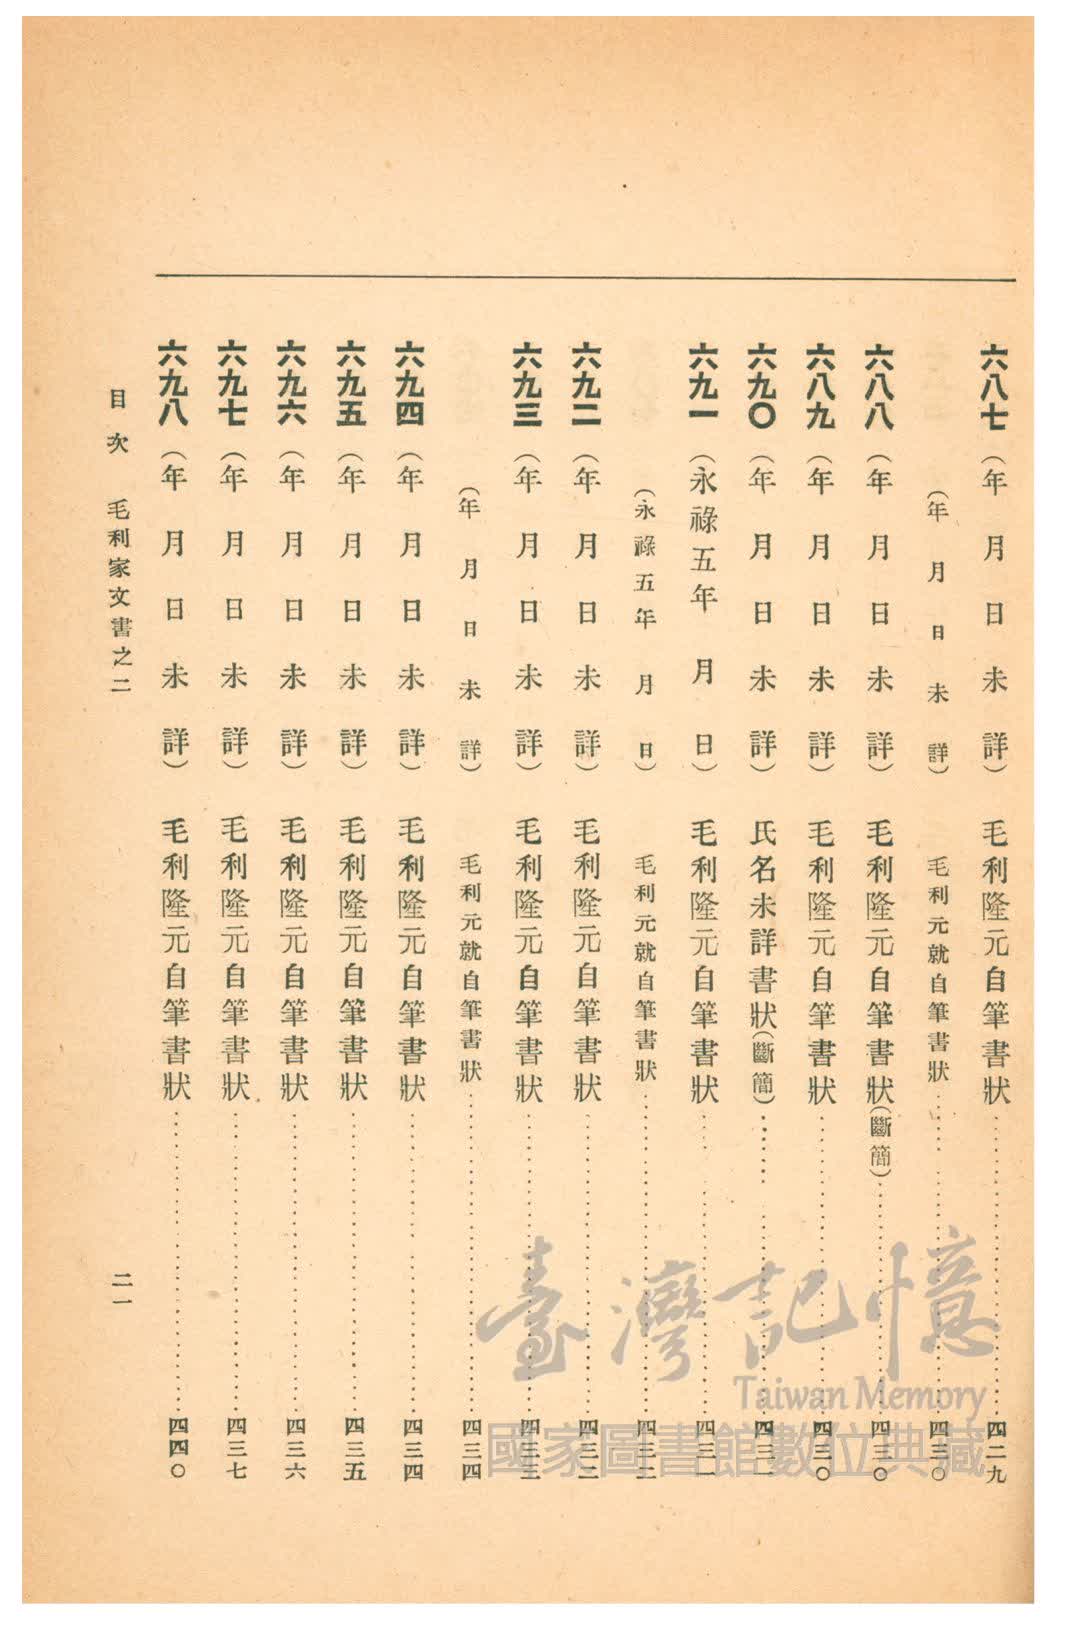 六八七 (年月日未詳) 毛利隆元自筆書狀……四二九
(年月日未詳) 毛利元就自筆書狀……四三〇
六八八 (年月日未詳) 毛利隆元自筆書狀(斷簡)……四三〇
六八九 (年月日未詳) 毛利隆元自筆書狀……四三〇
六九〇 (年月日未詳) 氏名未詳書狀(斷簡)……四三一
六九一 (永祿五年月日) 毛利隆元自筆書狀……四三一
(永祿五年月日) 毛利元就自筆書狀……四三二
六九二 (年月日未詳) 毛利隆元自筆書狀……四三二
六九三 (年月日未詳) 毛利隆元自筆書狀……四三三
(年月日未詳) 毛利元就自筆書狀……四三四
六九四 (年月日未詳) 毛利隆元自筆書狀……四三四
六九五 (年月日未詳) 毛利隆元自筆書狀……四三五
六九六 (年月日未詳) 毛利隆元自筆書狀……四三六
六九七 (年月日未詳) 毛利隆元自筆書狀……四三七
六九八 (年月日未詳) 毛利隆元自筆書狀……四四〇
目次 毛利家文書之二 二一
臺灣記憶
Taiwan Memory
國家圖書館數位典藏